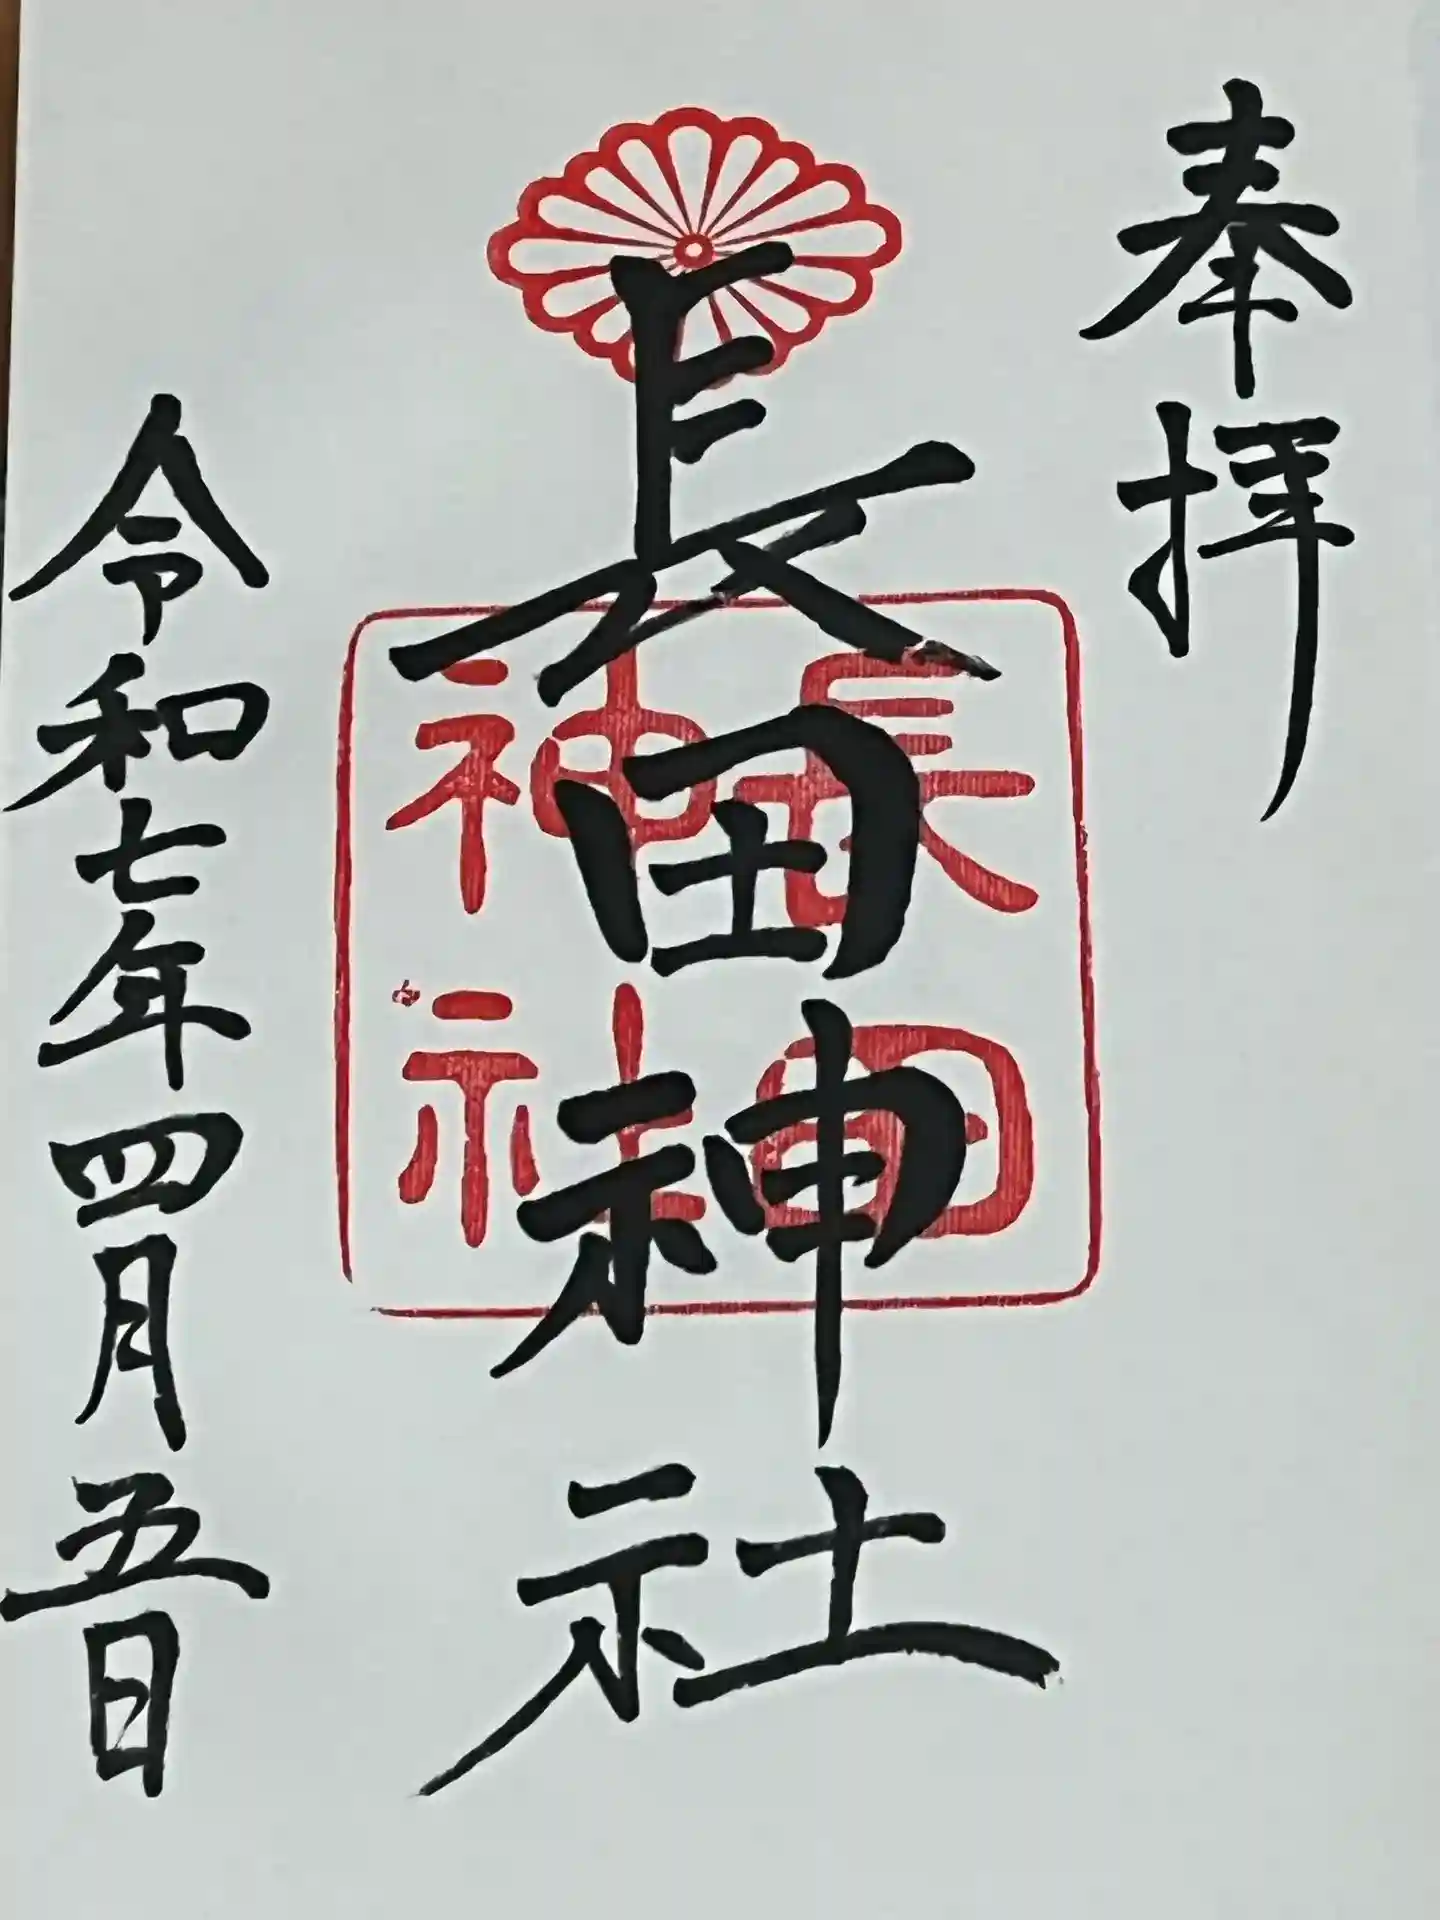 奉拝
長田神社
長田神社
令和七年四月五日